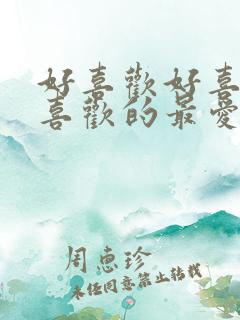 好喜歡好喜
喜歡的最愛
周惠珍
未任同意禁止转载